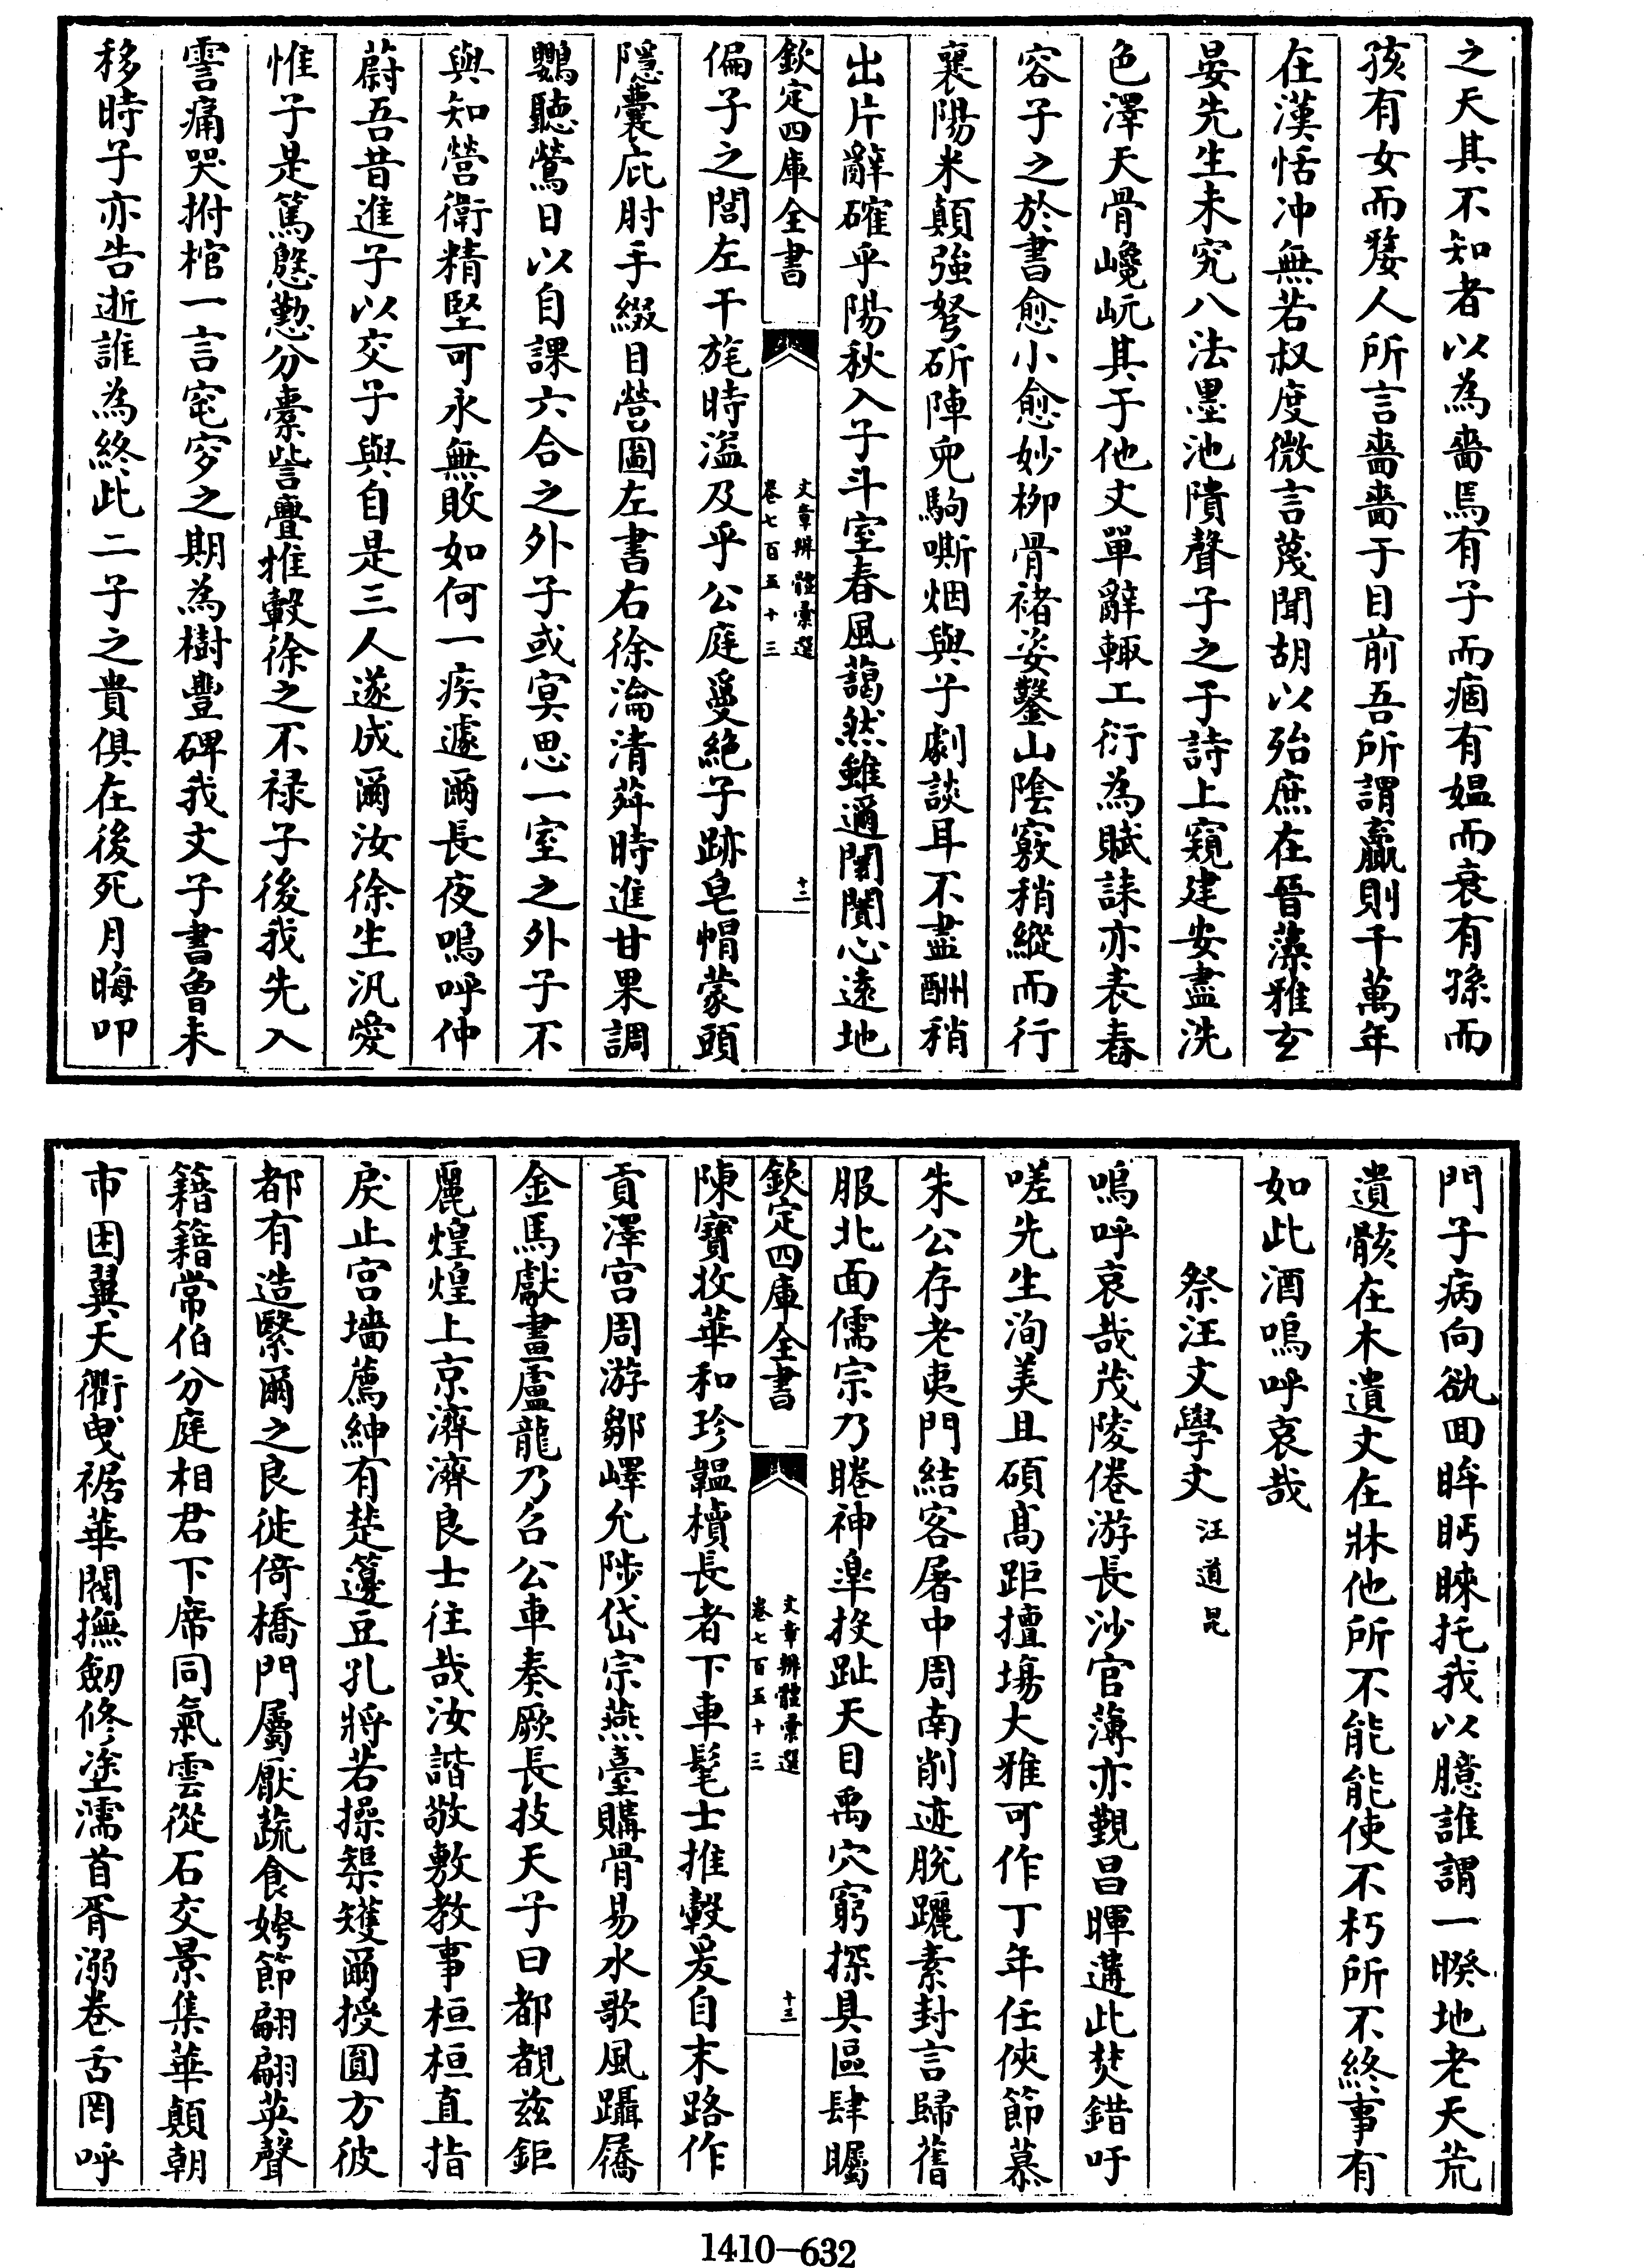 之天其不知者以為嗇焉有子而痼有媼而衰有孫而
孩有女而嫠人所言嗇嗇于目前吾所謂贏則千萬年
在漢恬冲無若叔度微言蔑聞胡以殆庶在晉藻雅玄
晏先生未究八法墨池隤聲子之于詩上窺建安盡洗
色澤天骨巉岏其于他文單辭輒工衍為賦誄亦表春
容子之於書愈小愈妙柳骨褚姿鑿山陰竅稍縱而行
襄陽米顛強弩斫陣兜駒嘶烟與子劇談耳不盡酬稍
出片辭確乎陽秋入子斗室春風藹然雖邇闤闠心遠地
欽定四庫全書
文章辨體彙選
卷七百五十三
十二
偏子之閭左干旄時溢及乎公庭爰絕子跡皂帽蒙頭
隱囊庇肘手綴目營圖左書右徐瀹清荈時進甘果調
鸚聽鶯日以自課六合之外子或寘思一室之外子不
與知營衛精堅可永無敗如何一疾遽爾長夜嗚呼仲
蔚吾昔進子以交子與自是三人遂成爾汝徐生汎愛
惟子是篤慇懃分橐訾亹推轂徐之不禄子後我先入
雪痛哭拊棺一言窀穸之期為樹豐碑我文子書曾未
移時子亦告逝誰為終此二子之貴俱在後死月晦叩
門子病向欲回眸眄睞托我以臆誰謂一暌地老天荒
遺骸在木遺文在牀他所不能能使不朽所不終事有
如此酒嗚呼哀哉
祭汪文學文 汪道昆
嗚呼哀哉茂陵倦游長沙官薄亦覯昌暉遘此焚錯吁
嗟先生洵美且碩髙距擅塲大雅可作丁年任俠節慕
朱公存老夷門結客屠中周南削迹脫躧素封言歸舊
服北面儒宗乃睠神臯投趾天目禹穴窮探具區肆矚
欽定四庫全書
文章辨體彙選
卷七百五十三
十三
陳寶收華和珍韞櫝長者下車髦士推轂爰自末路作
貢澤宫周游鄒嶧允陟岱宗燕臺購骨易水歌風躡屩
金馬獻畫盧龍乃召公車奏厥長技天子曰都覩兹鉅
麗煌煌上京濟濟良士往哉汝諧敬敷教事桓桓直指
戾止宫墻薦紳有楚籩豆孔將若操榘矱爾授圓方彼
都有造緊爾之良徙倚橋門屬厭蔬食姱節翩翩英聲
籍籍常伯分庭相君下席同氣雲從石交景集華顛朝
市困翼天衢曳裾華閥撫劒修塗濡首胥溺卷舌罔呼
1410—632